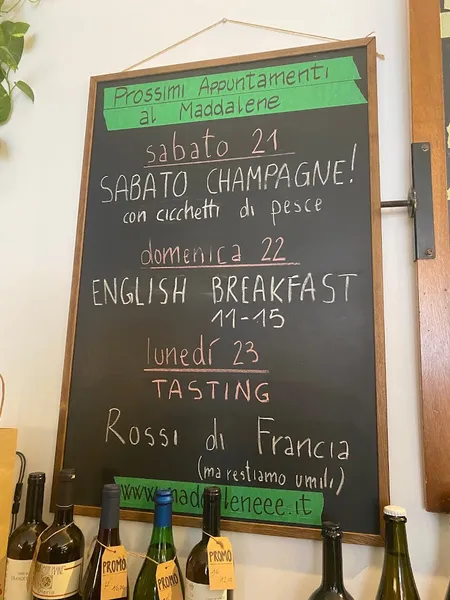 Prossimi Appuntamenti
al Maddalene
sabato 21
SABATO CHAMPAGNE!
con cicchetti di pesce
domenica 22
ENGLISH BREAKFAST
11-15
lunedí 23
TASTING
Rossi di Francia
(ma restiamo umili)
www.maddaleneee.it
PROMO
PROMO
PROMO